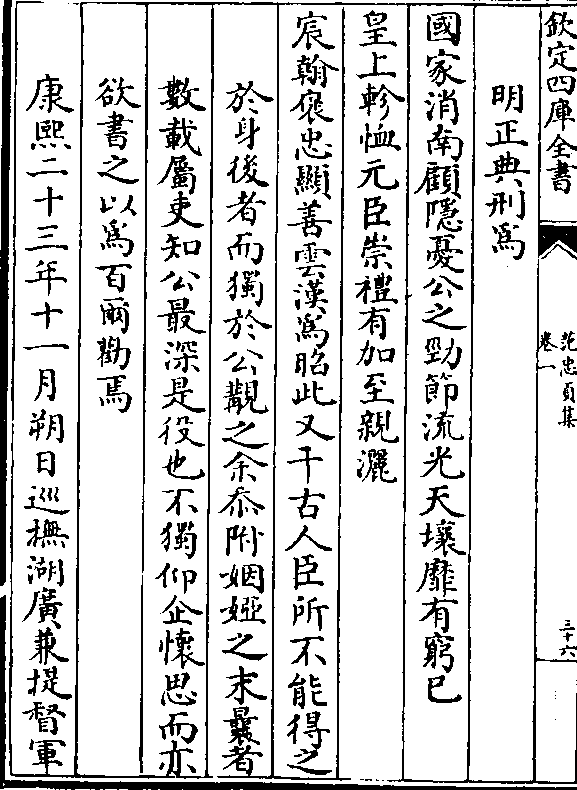 欽定四庫全書
范忠貞集
卷一
三十六
明正典刑爲
國家消南顧隱憂公之勁節流光天壤靡有窮已
皇上軫恤元臣崇禮有加至親灑
宸翰褒忠顯善雲漢爲昭此又千古人臣所不能得之
於身後者而獨於公覯之余忝附姻婭之末曩者
數載屬吏知公最深是役也不獨仰企懷思而亦
欲書之以爲百爾勸焉
康熙二十三年十一月朔日巡撫湖廣兼提督軍